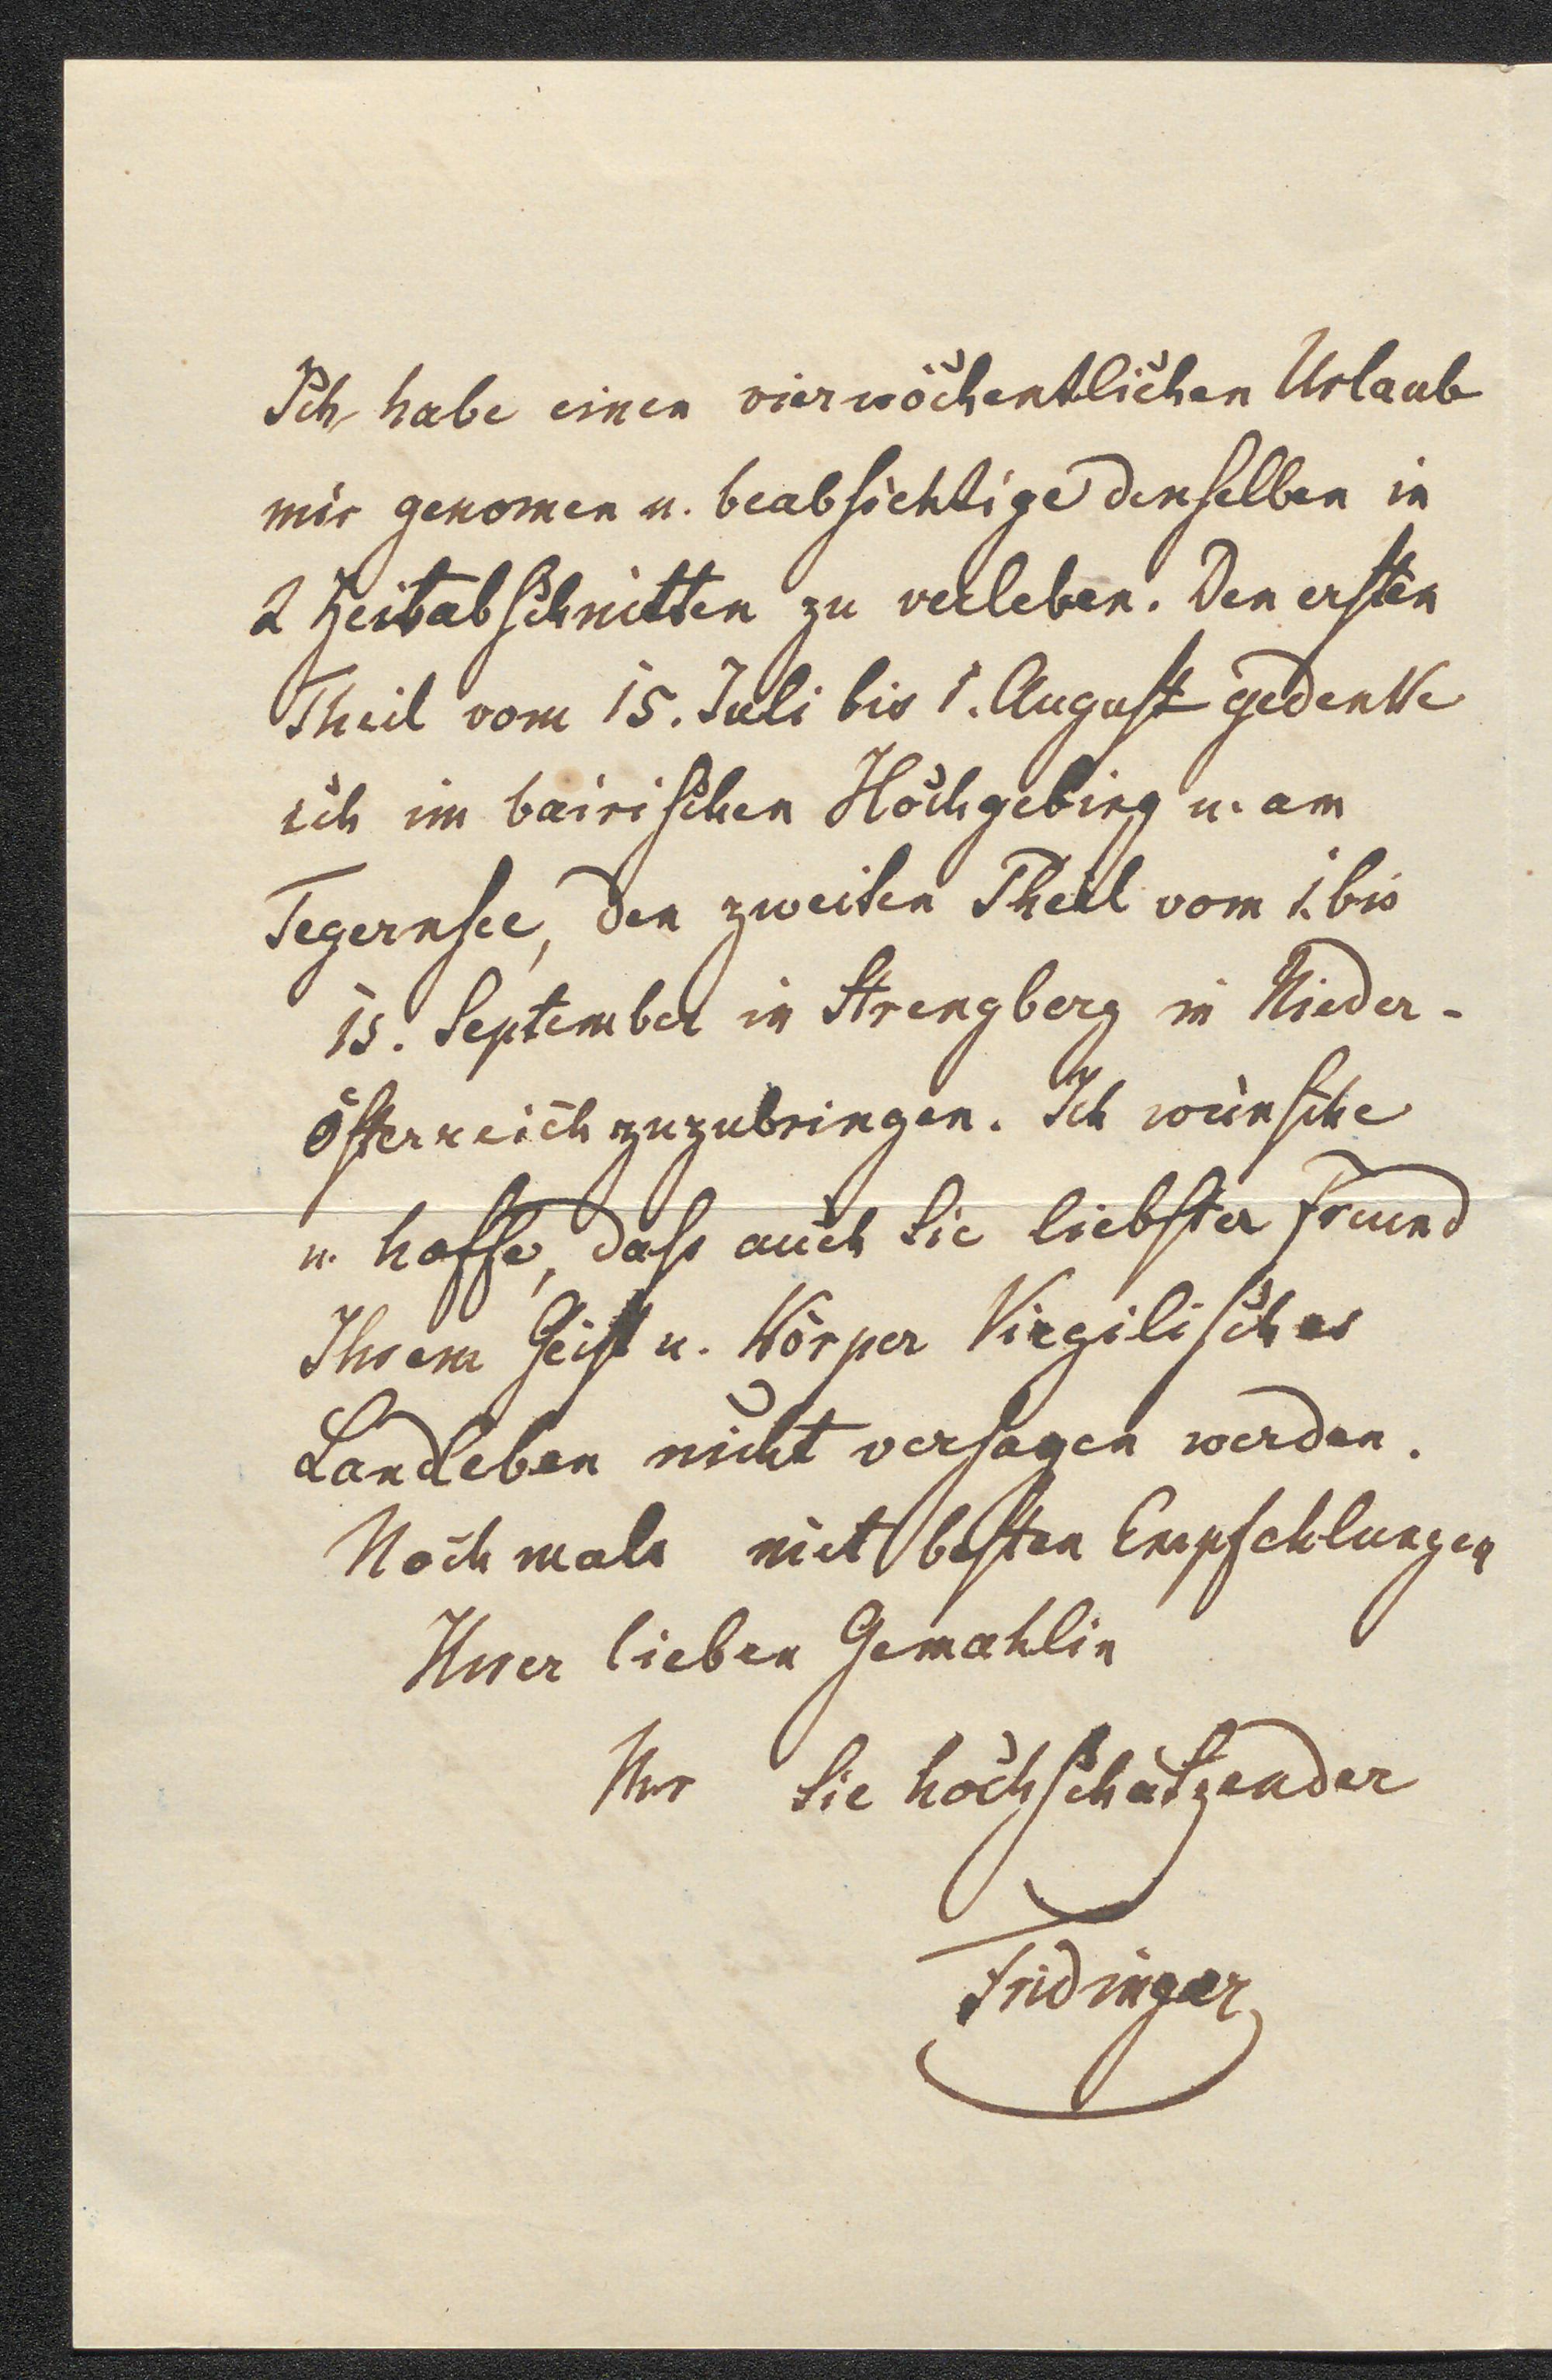 Ich habe einen vierwöchentlichen Urlaub
mir genomen u. beabsichtige denselben in
2 Zeitabschnitten zu verleben. Den ersten
Theil vom 15. Juli bis 1. August gedenke
ich im bairischen Hochgebirg u. am
Tegernsee, den zweiten Theil vom 1. bis
15. September in Strengberg in Nieder-
österreich zuzubringen. Ich wünsche
u. hoffe, daß auch Sie liebster Freund
Ihrem Geist u. Körper Virgilisches
Landleben nicht versagen werden.
Nochmals mit besten Empfehlungen
Ihrer lieben Gemahlin
Ihr Sie hochschätzender
Fridinger